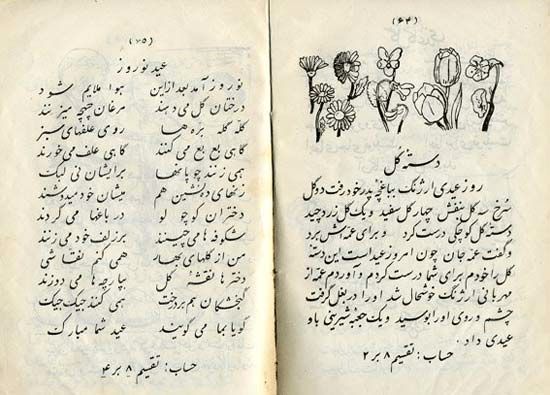 (۶۴)
دسته گل
روز عیدی ارژنگ بباغچه پدر خود رفت دو گل
سرخ سه گل بنفش چهار گل سفید و یک گل زرد چید
دسته گل کوچکی درست کرد و برای عمه اش برد
و گفت عمه جان چون امروز عید است این دسته
گل را خودم برای شما درست کردم و آوردم عمه از
مهربانی ارژنگ خوشحال شد او را در بغل گرفت
چشم و روی او را بوسید و یک جعبه شیرینی باو
عیدی داد .
حساب : تقسیم ۸ بر ۲
(۶۵)
عید نوروز
نوروز آمد بعد از این هوا ملایم شود
درختان گل می دهند مرغان چهچه میزنند
گله گله بره ها روی علفهای سبز
گاهی بع بع می کنند گاهی علف می خورند
همی زنند چوپانها برایشان نی لبک
زنهای ده نشین هم میشان خود میدوشند
دختران کوچولو در باغها می گردند
شکوفه ها می چینند بر زلف خود می زنند
من از گلهای بهار همی کنم نقاشی
دخترها نقشه گل بپارچه ها می دوزند
گنجشکان هم بر درخت همی کنند جیک جیک
گویا بما می گویند عید شما مبارک
حساب : تقسیم ۸ بر ۴